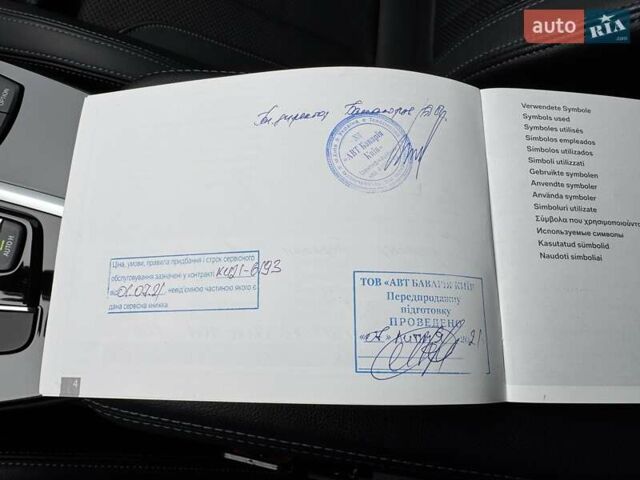 auto RIA.com
OPTION
AUTO H
Ген. директор
"АВТ Баварія
Київ"
Ціна, умови, правила придбання і строк сервісного
обслуговування зазначені у контракті КИ11-6193
від 01.07.21 невід'ємною частиною якого є
дана сервісна книжка
ТОВ «АВТ БАВАРІЯ КИЇВ»
Передпродажну
підготовку
ПРОВЕДЕНО
4
Verwendete Symbole
Symbols used
Symboles utilisés
Símbolos empleados
Símbolos utilizados
Simboli utilizzati
Gebruikte symbolen
Anvendte symboler
Använda symboler
Simboluri utilizate
Σύμβολα που χρησιμοποιούντα
Используемые символы
Kasutatud sümbolid
Naudoti simboliai